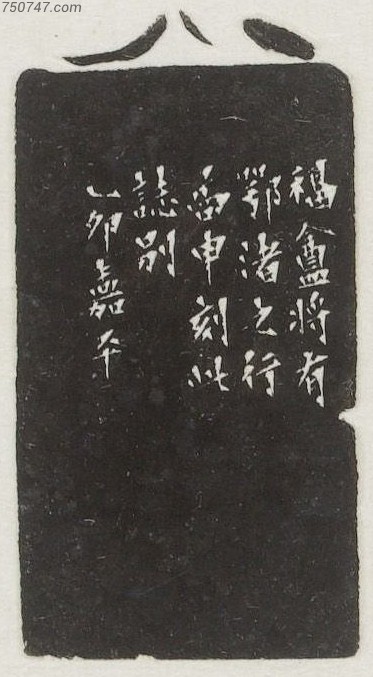 750747.com
福盦將有
鄂渚之行
矞申刻此
誌別
乙卯嘉平